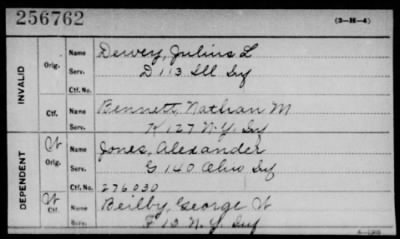 256762
(3-H-4)
INVALID
Orig. Name Dewey, Julius L
Serv. D 113 Ill Inf
Ctf. No.
Ctf. Name Bennett, Nathan M
Serv. K 127 N.Y. Inf
DEPENDENT
W Orig. Name Jones, Alexander
Serv. G 140 Ohio Inf
Ctf. No. 276030
W Ctf. Name Beilby, George W
Serv. F 10 N.Y. Inf